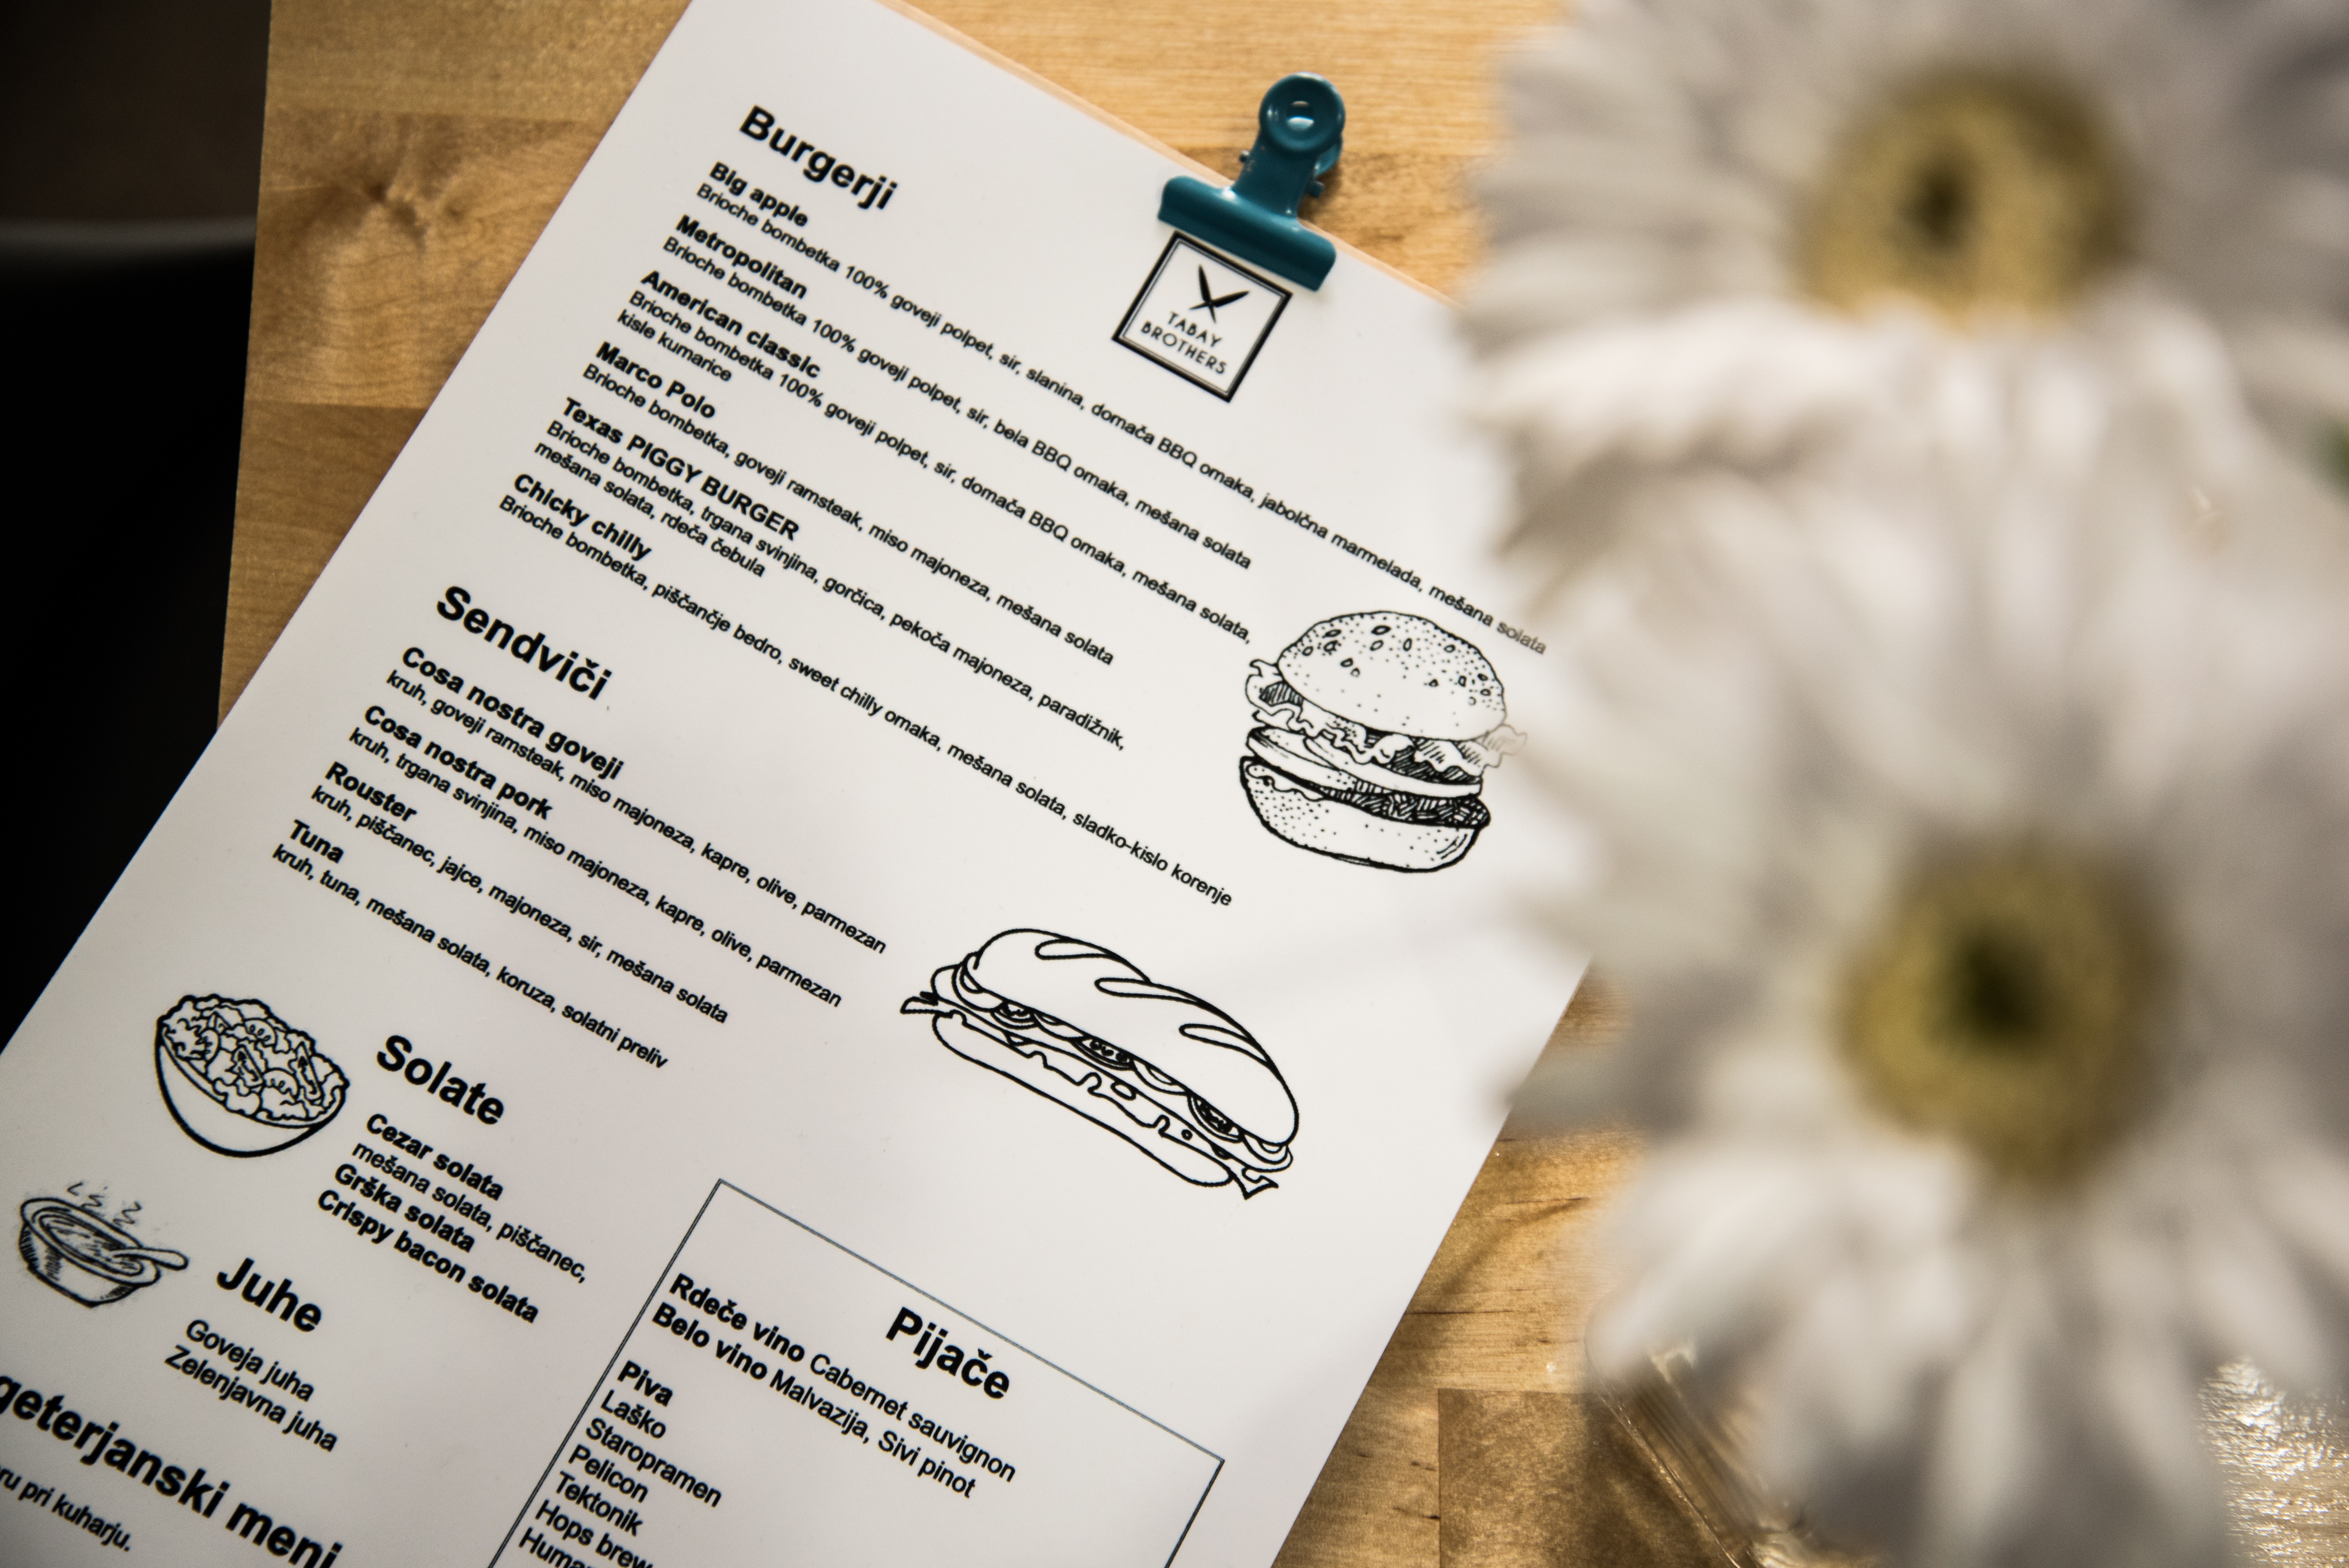 TABAY
BROTHERS
Burgerji
Big apple
Brioche bombetka 100% goveji polpet, sir, slanina, domača BBQ omaka, jabolčna marmelada, mešana solata
Metropolitan
Brioche bombetka 100% goveji polpet, sir, bela BBQ omaka, mešana solata
American classic
Brioche bombetka 100% goveji polpet, sir, domača BBQ omaka, mešana solata,
kisle kumarice
Marco Polo
Brioche bombetka, goveji ramsteak, miso majoneza, mešana solata
Texas PIGGY BURGER
Brioche bombetka, trgana svinjina, gorčica, pekoča majoneza, paradižnik,
mešana solata, rdeča čebula
Chicky chilly
Brioche bombetka, piščančje bedro, sweet chilly omaka, mešana solata, sladko-kislo korenje
Sendviči
Cosa nostra goveji
kruh, goveji ramsteak, miso majoneza, kapre, olive, parmezan
Cosa nostra pork
kruh, trgana svinjina, miso majoneza, kapre, olive, parmezan
Rouster
kruh, piščanec, jajce, majoneza, sir, mešana solata
Tuna
kruh, tuna, mešana solata, koruza, solatni preliv
Solate
Cezar solata
mešana solata, piščanec,
Grška solata
Crispy bacon solata
Juhe
Goveja juha
Zelenjavna juha
geterjanski meni
ru pri kuharju.
Pijače
Rdeče vino Cabernet sauvignon
Belo vino Malvazija, Sivi pinot
Piva
Laško
Staropramen
Pelicon
Tektonik
Hops brew